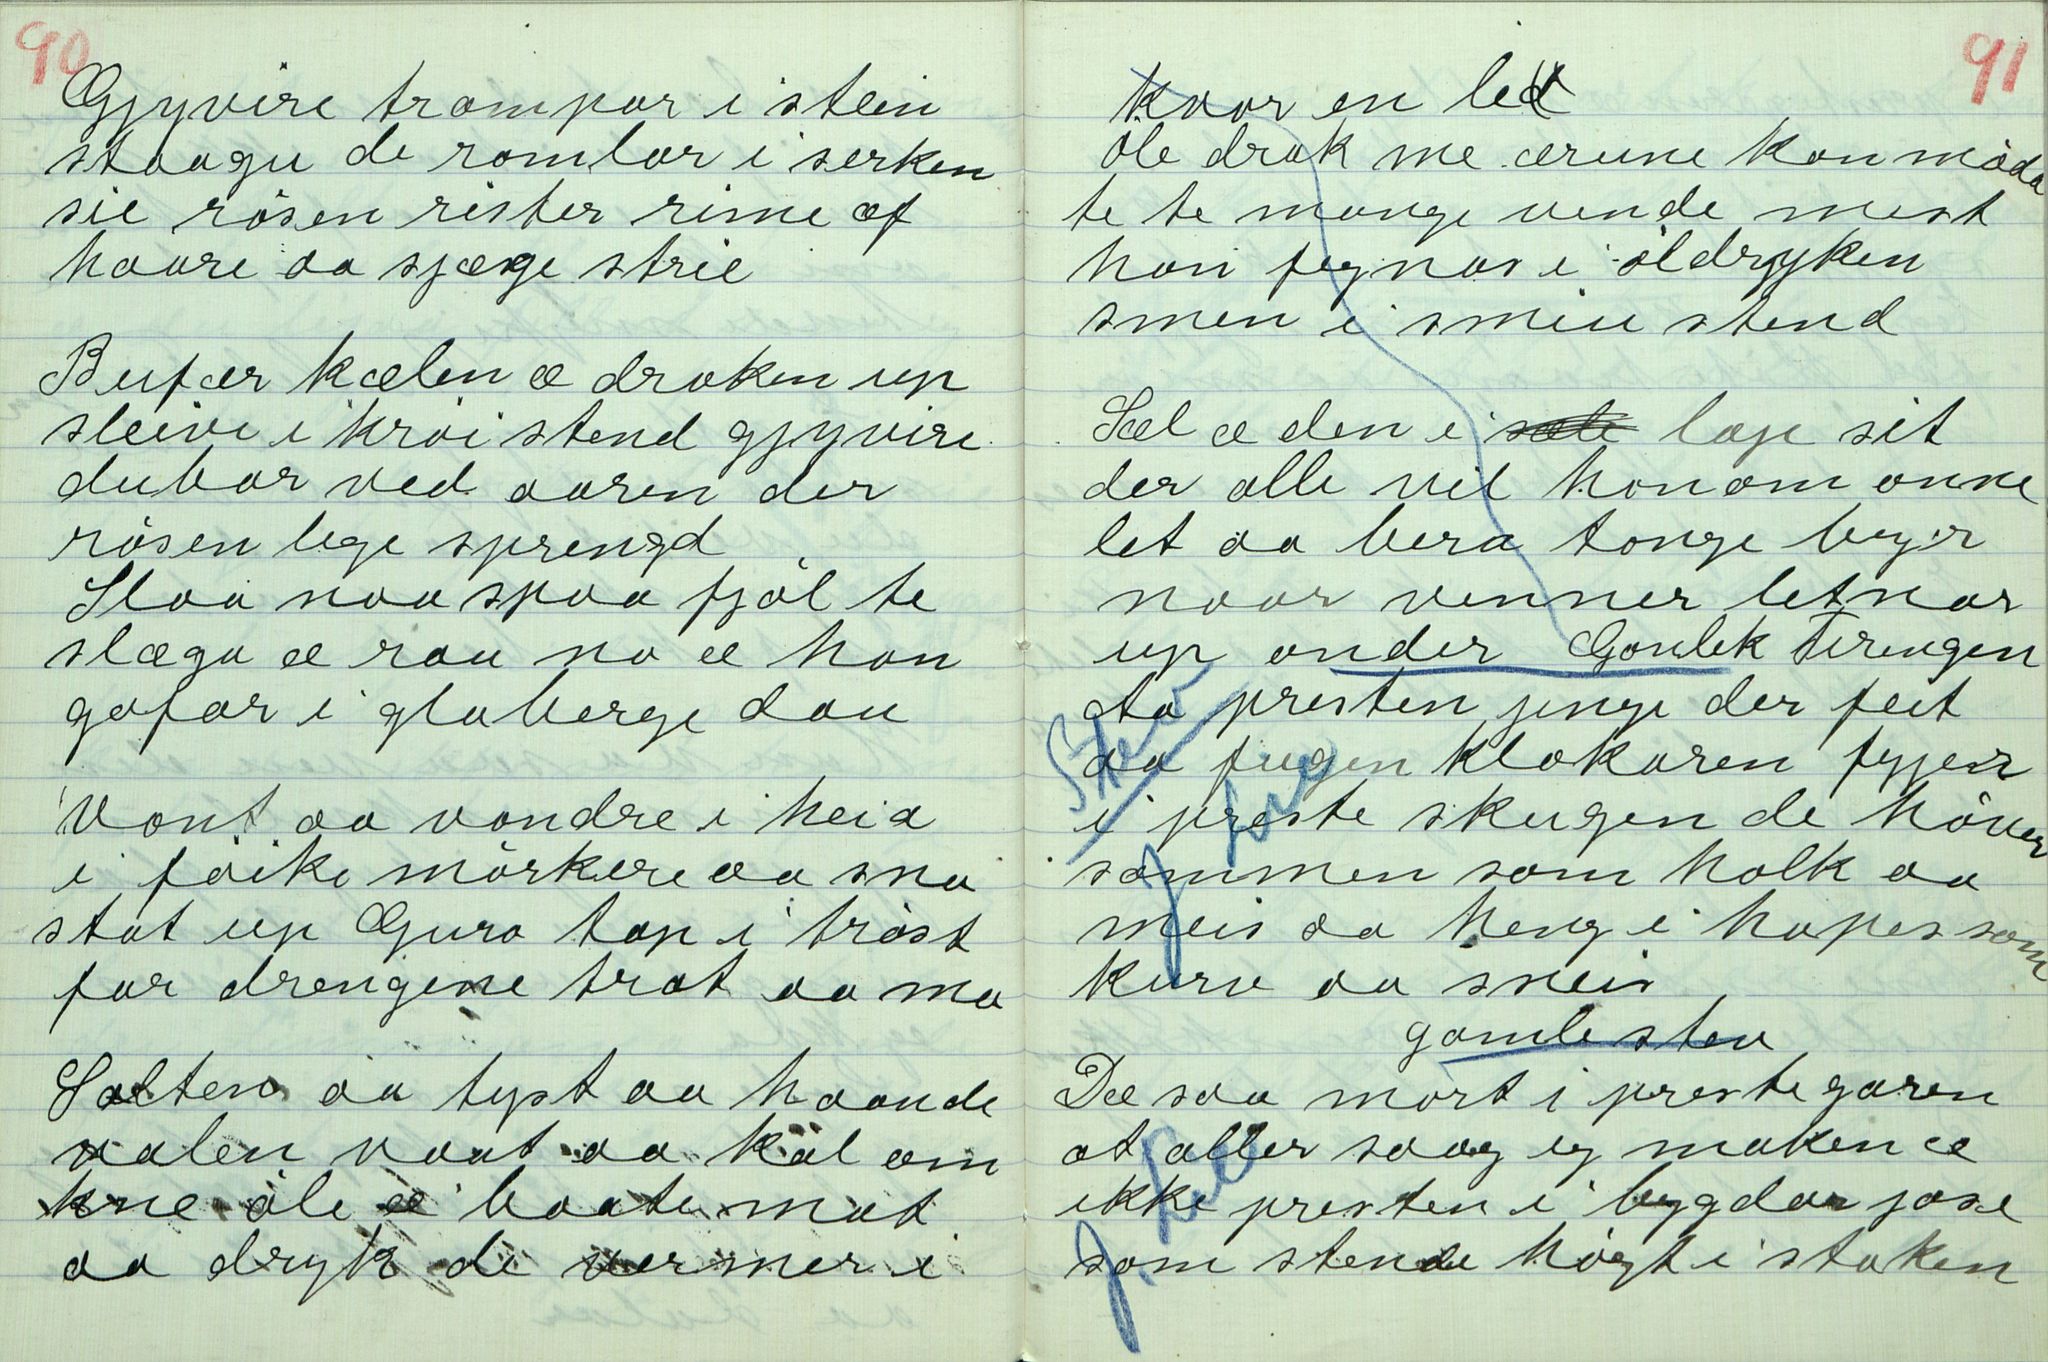 90
Gjyvire trampar i stein
staagu de romlar i serken
sie rösen rister rime af
haare aa sjæge strie
Bufær kælen æ draken up
sleive i kröi stend gjyvire
dubar ved aaren der
rösen lege sprengd
Slaa naa spaa fjöl te
slæga æ rau na æ han
gafar i glaberge dau
Vont aa vandre i heia
i föike mörkere aa sna
stat up Guro tap i tröst
for drengene trat aa ma
Solten aa tyst aa haande
valen vaat aa kal om
kne öle æ baate mat
aa dryk de vermer i
91
kvar en led
Öle drak me ærune kan möda
te te mange vende mest
han fegnas i öldryken
smen i smiu stend
Sæl æ den i lage sit
der alle vil honom onne
let aa bera tonge byr
naar venner letnar
up onder Gonlek Tirengen
Aa presten jenge der feit
aa fugen klokaren fyjer
i preste skugen de höver
sammen som holk aa
meis aa heng i hopes som
kurv aa sneis
Stev
gamle stev
De saa mört i prestegaren
at aller saag eg maken æ
ikke presten i bygdar jase
som stende högt i staken